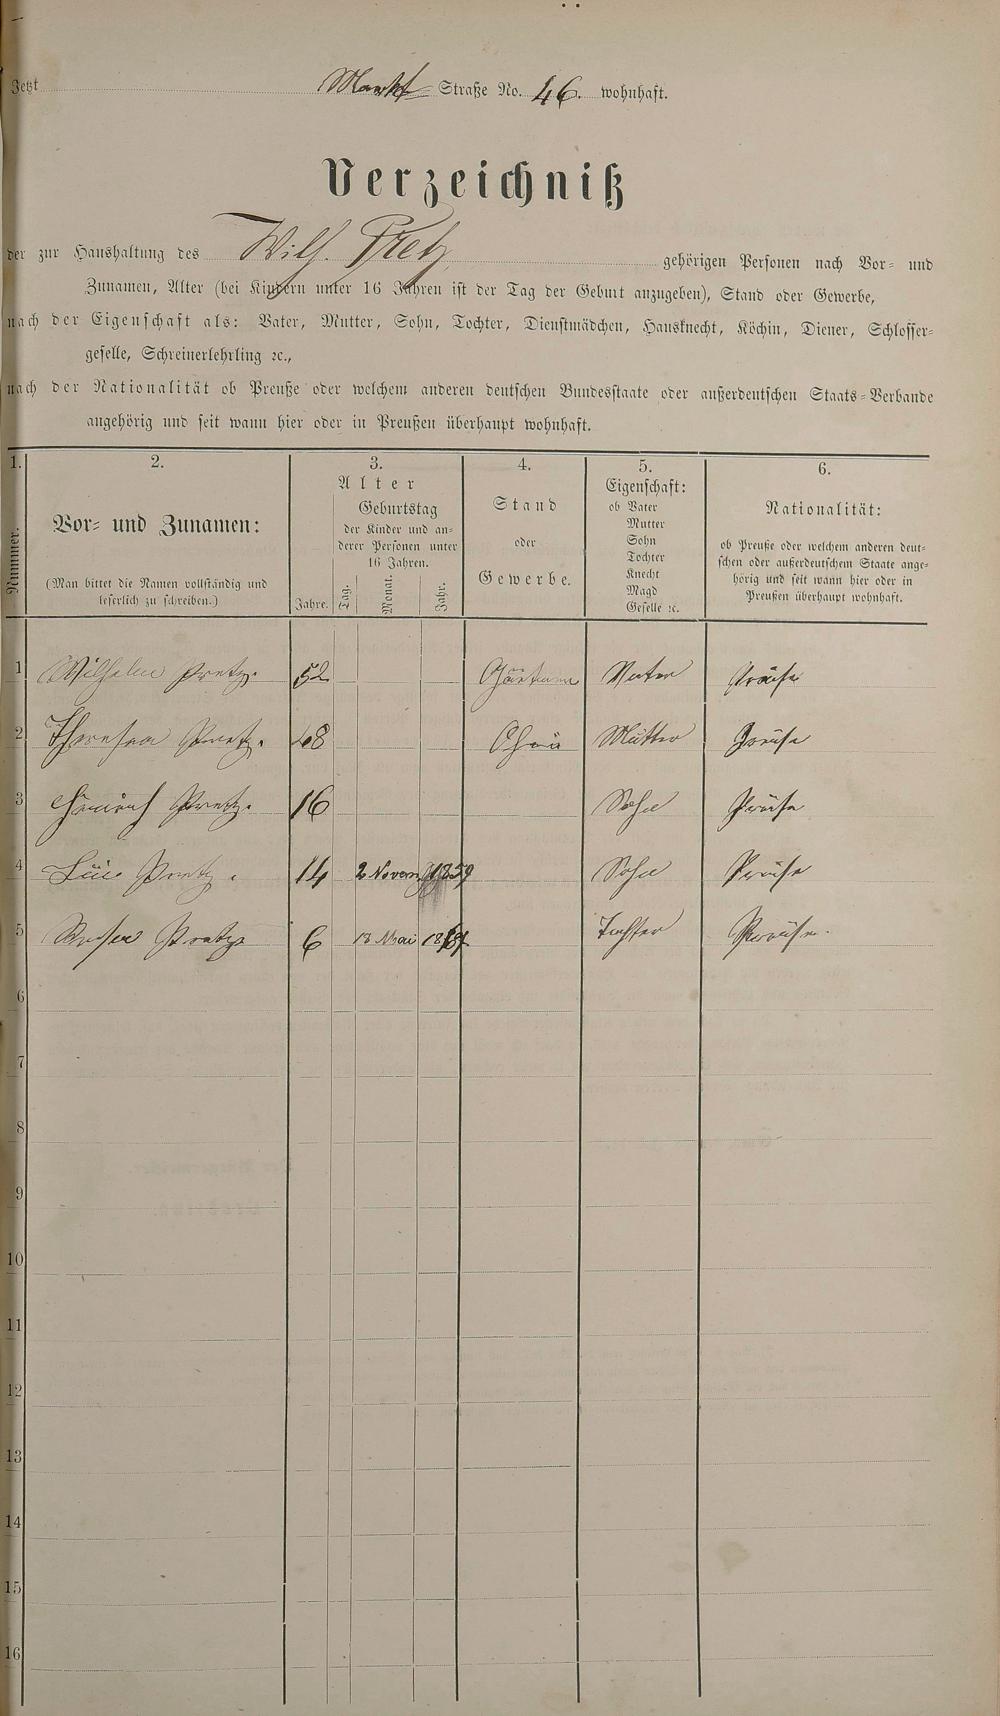 Jetzt Markt Straße No. 46. wohnhaft.
Verzeichniß
der zur Haushaltung des Wilh. Pretz gehörigen Personen nach Vor- und
Zunamen, Alter (bei Kindern unter 16 Jahren ist der Tag der Geburt anzugeben), Stand oder Gewerbe,
nach der Eigenschaft als: Vater, Mutter, Sohn, Tochter, Dienstmädchen, Hausknecht, Köchin, Diener, Schlosser-
geselle, Schreinerlehrling ꝛc.,
nach der Nationalität ob Preuße oder welchem anderen deutschen Bundesstaate oder außerdeutschen Staats-Verbande
angehörig und seit wann hier oder in Preußen überhaupt wohnhaft.
1. 2. 3. 4. 5. 6.
Nummer.
Vor- und Zunamen:
(Man bittet die Namen vollständig und
leserlich zu schreiben.)
Alter
Jahre.
Geburtstag
der Kinder und an-
derer Personen unter
16 Jahren.
Tag. Monat. Jahr.
Stand
oder
Gewerbe.
Eigenschaft:
ob Vater
Mutter
Sohn
Tochter
Knecht
Magd
Geselle ꝛc.
Nationalität:
ob Preuße oder welchem anderen deut-
schen oder außerdeutschem Staate ange-
hörig und seit wann hier oder in
Preußen überhaupt wohnhaft.
1 Wilhelm Pretz. 52 Vater Präuse
2 Theresea Pretz. 48 Mutter Präuse
3 Heinrich Pretz. 16 Sohn Präuse
4 Pretz. 14 2 Novem 1859 Sohn Präuse
5 Pretz 6 18 Mai Tochter Präuse.
6
7
8
9
10
11
12
13
14
15
16